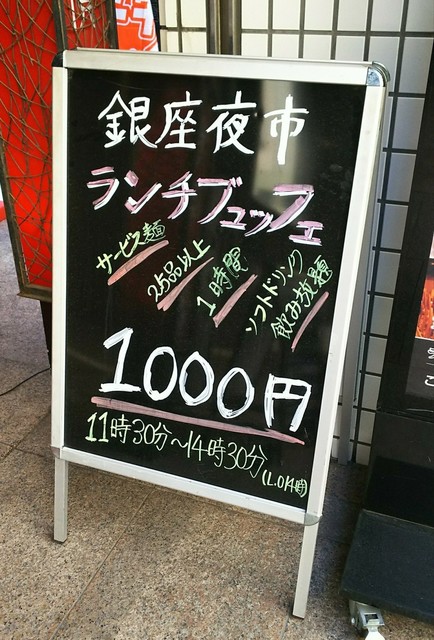 銀座夜市
ランチブュッフェ
サービス麺
25品以上
1時間
ソフトドリンク
飲み放題
1000円
11時30分~14時30分
(L.O14時)